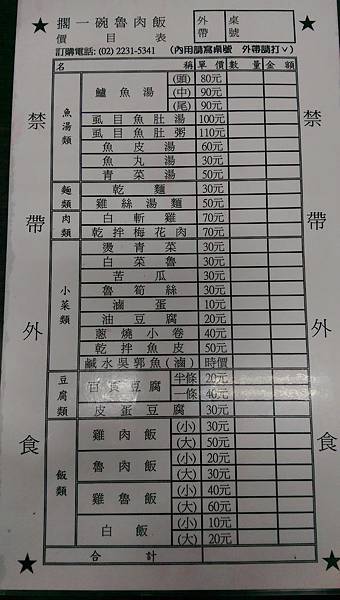 ★ 擱一碗魯肉飯 ★
價目表
外帶 桌號
訂購電話: (02) 2231-5341 (內用請寫桌號 外帶請打ˇ)
名稱 單價 數量 金額
魚湯類
鱸魚湯 (頭) 80元
(中) 90元
(尾) 90元
虱目魚肚湯 100元
虱目魚肚粥 110元
魚皮湯 60元
魚丸湯 30元
青菜湯 50元
麵類
乾麵 30元
雞絲湯麵 50元
肉類
白斬雞 70元
乾拌梅花肉 70元
小菜類
燙青菜 30元
白菜魯 30元
苦瓜 30元
魯筍絲 30元
滷蛋 10元
油豆腐 20元
蔥燒小卷 40元
乾拌魚皮 50元
鹹水吳郭魚(滷) 時價
豆腐類
百頁豆腐 半條 20元
一條 40元
皮蛋豆腐 30元
飯類
雞肉飯 (小) 30元
(大) 50元
魯肉飯 (小) 20元
(大) 30元
雞魯飯 (小) 40元
(大) 60元
白飯 (小) 10元
(大) 20元
合計
禁帶外食
禁帶外食
★ ★